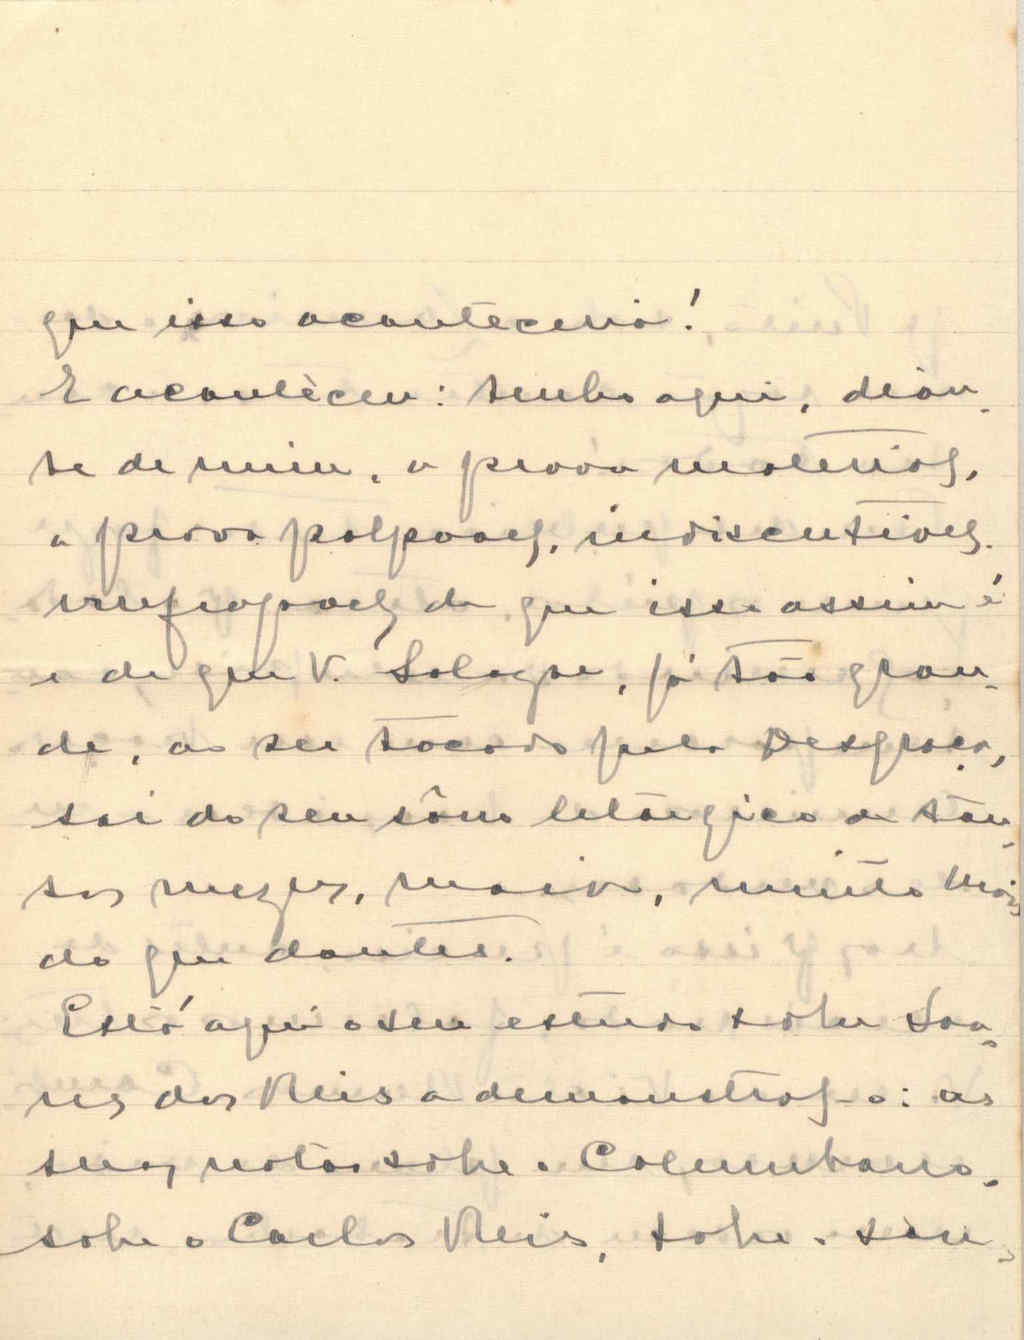 que isso aconteceria!
E acontèceu: tenho aqui, dean-
te de mim, a prova material,
a prova palpavel, indiscutivel
irrefragavel de que isso assim é
e de que V. Salazar, já tão gran-
de, ao ser tocado pela Desgraça,
sai do seu sôno letárgico de tan-
tos mezes, maior, muito mais
do que dantes.
Está aqui o seu estudo sobre Soa-
res dos Reis a demonstral-o: as
suas notas sobre o Columbano,
sobre o Carlos Reis, sobre o seu